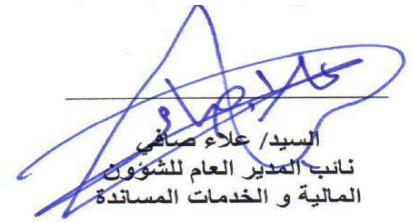 السيد/ علاء صافي
نائب المدير العام للشؤون
المالية و الخدمات المساندة